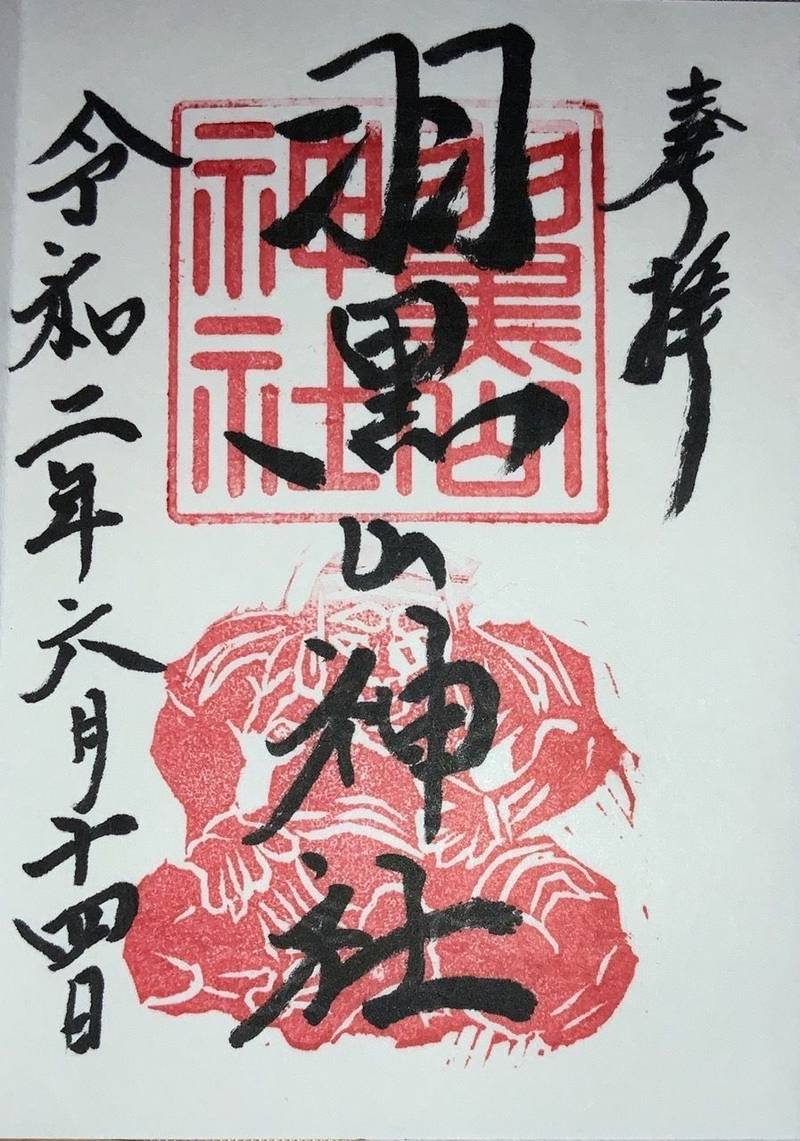 奉拝
羽黒山神社
羽黒山神社
令和二年六月十四日